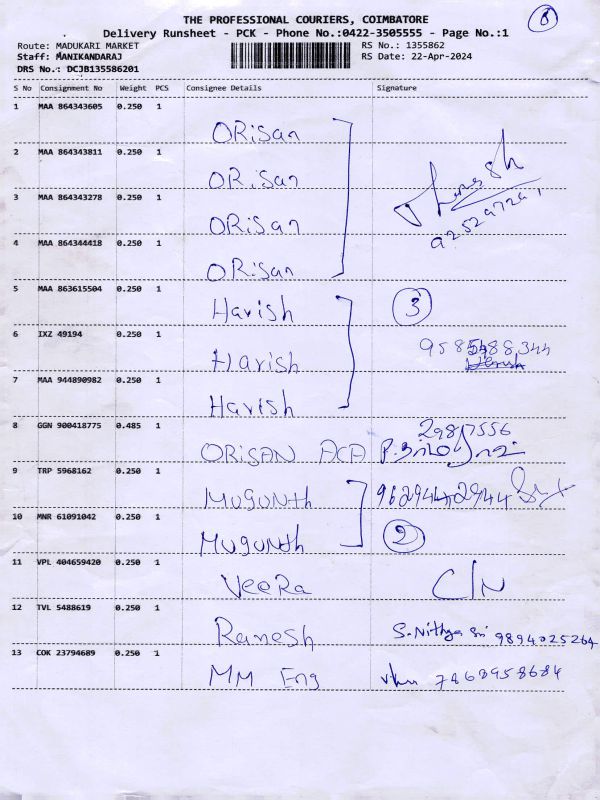 8
THE PROFESSIONAL COURIERS, COIMBATORE
Delivery Runsheet - PCK - Phone No.:0422-3505555 - Page No.:1
Route: MADUKARI MARKET RS No.: 1355862
Staff: MANIKANDARAJ RS Date: 22-Apr-2024
DRS No.: DCJB135586201
S No Consignment No Weight PCS Consignee Details Signature
1 MAA 864343605 0.250 1
ORiSan
2 MAA 864343811 0.250 1
ORiSan
3 MAA 864343278 0.250 1
ORiSan
4 MAA 864344418 0.250 1
ORiSan
5 MAA 863615504 0.250 1
Harish 3
6 IXZ 49194 0.250 1
Harish
7 MAA 944890982 0.250 1
Harish
8 GGN 900418775 0.485 1
ORISAN ACA
9 TRP 5968162 0.250 1
Mugunth
10 MNR 61091042 0.250 1
Mugunth 2
11 VPL 404659420 0.250 1
VeeRa C/N
12 TVL 5488619 0.250 1
Ramesh S. Nithya Sri 9894025264
13 COK 23794689 0.250 1
MM Eng